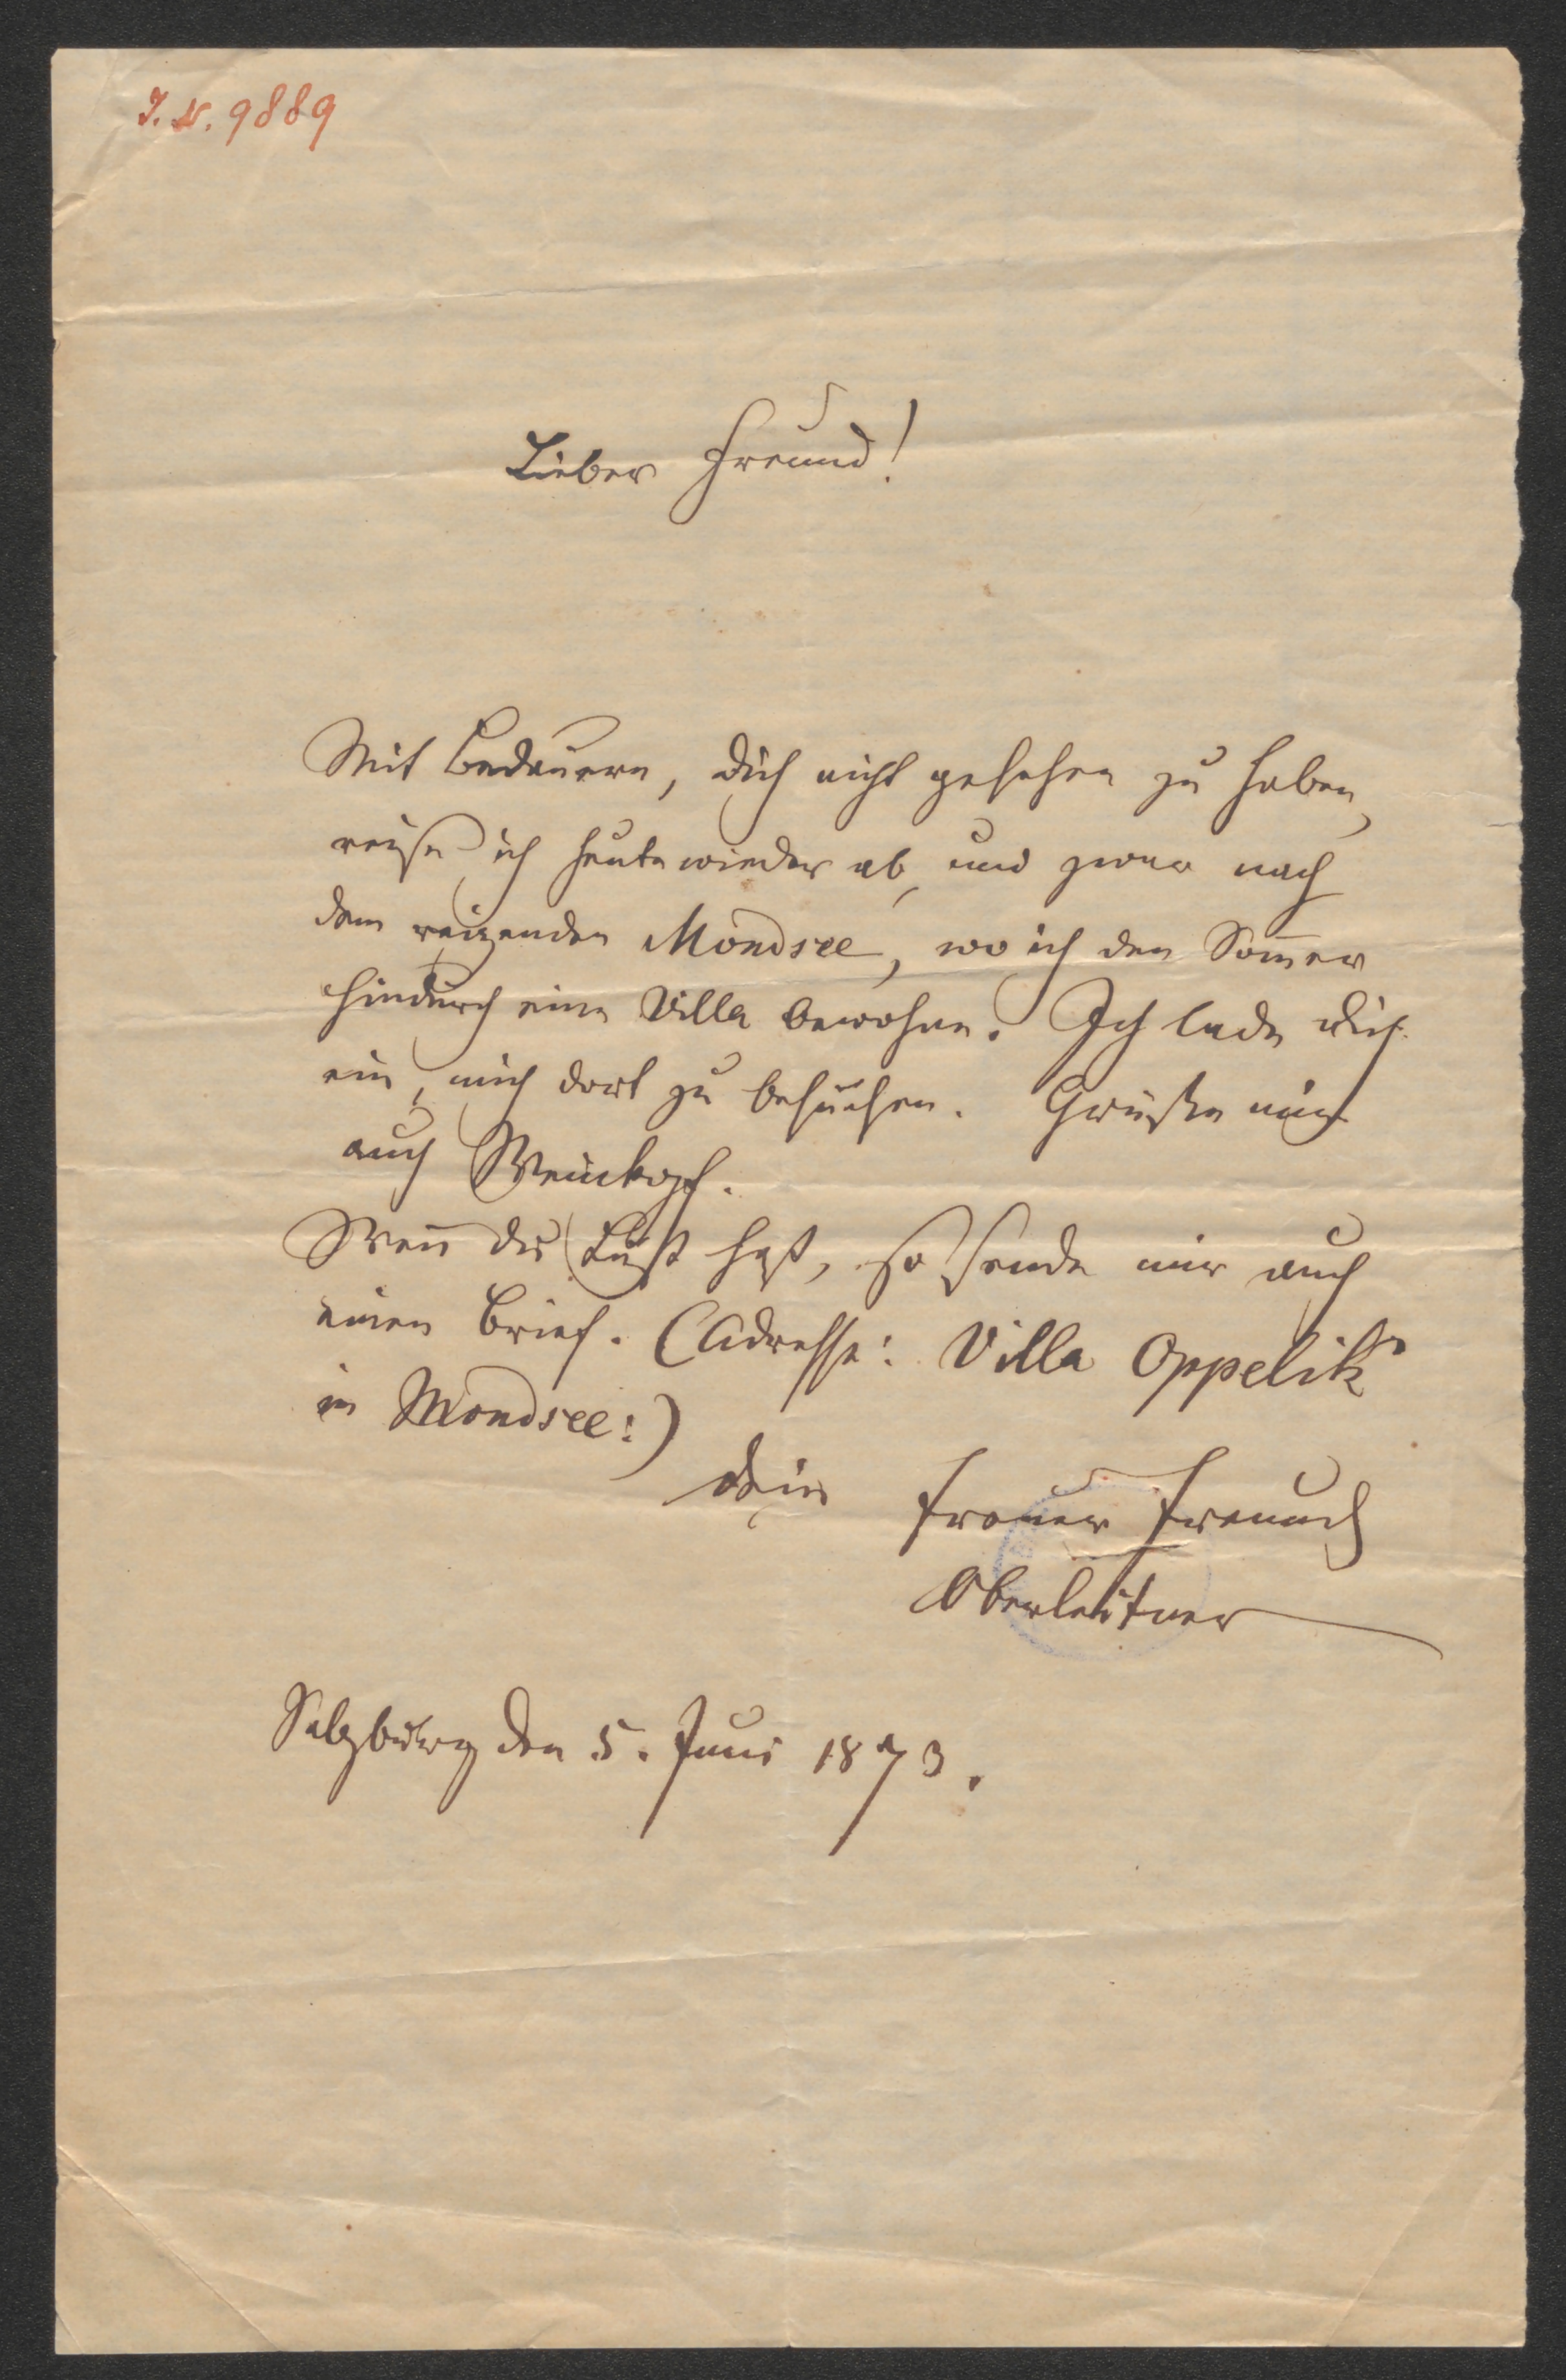 J. N. 9889
Lieber Freund!
Mit Bedauern, Dich nicht gesehen zu haben,
reise ich heute wieder ab, und zwar nach
dem reizenden Mondsee, wo ich den Som̄er
hindurch eine Villa bewohne. Ich lade Dich
ein, mich dort zu besuchen. Grüße mir
auch Weinkopf.
Wen̄ du Lust hast, so sende mir auch
einen Brief. (Adresse: Villa Oppelik
in Mondsee:)
Dein treuer Freund
Oberleitner
Salzburg den 5. Juni 1873.